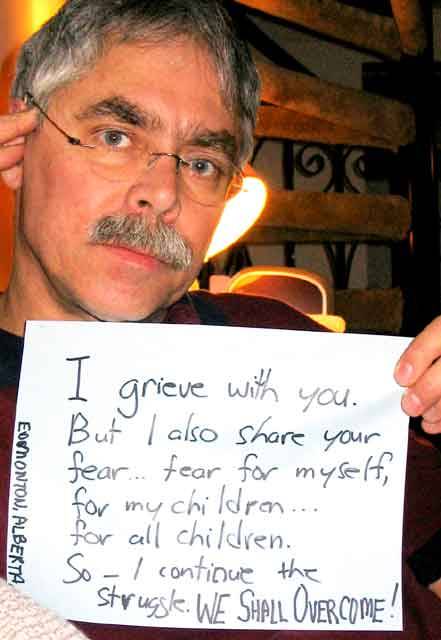 I grieve with you.
But I also share your
fear... fear for myself,
for my children...
for all children.
So – I continue the
struggle. WE SHALL OVERCOME!
EDMONTON, ALBERTA